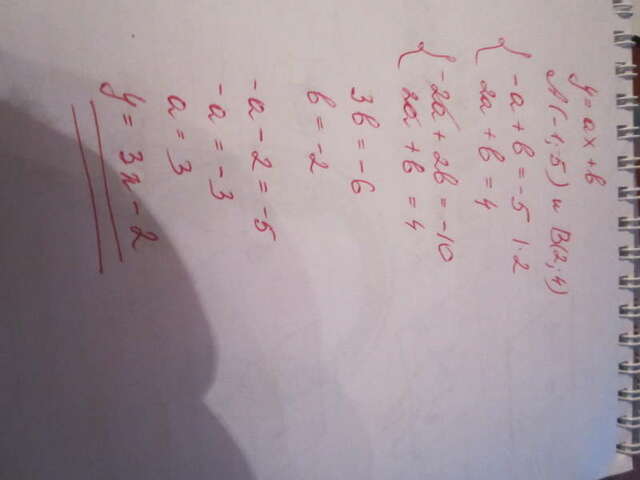 y = ax + b
A(-1; 5) и B(2; 4)
{ -a + b = -5 | · 2
2a + b = 4
{ -2a + 2b = -10
2a + b = 4
3b = -6
b = -2
-a - 2 = -5
-a = -3
a = 3
y = 3x - 2